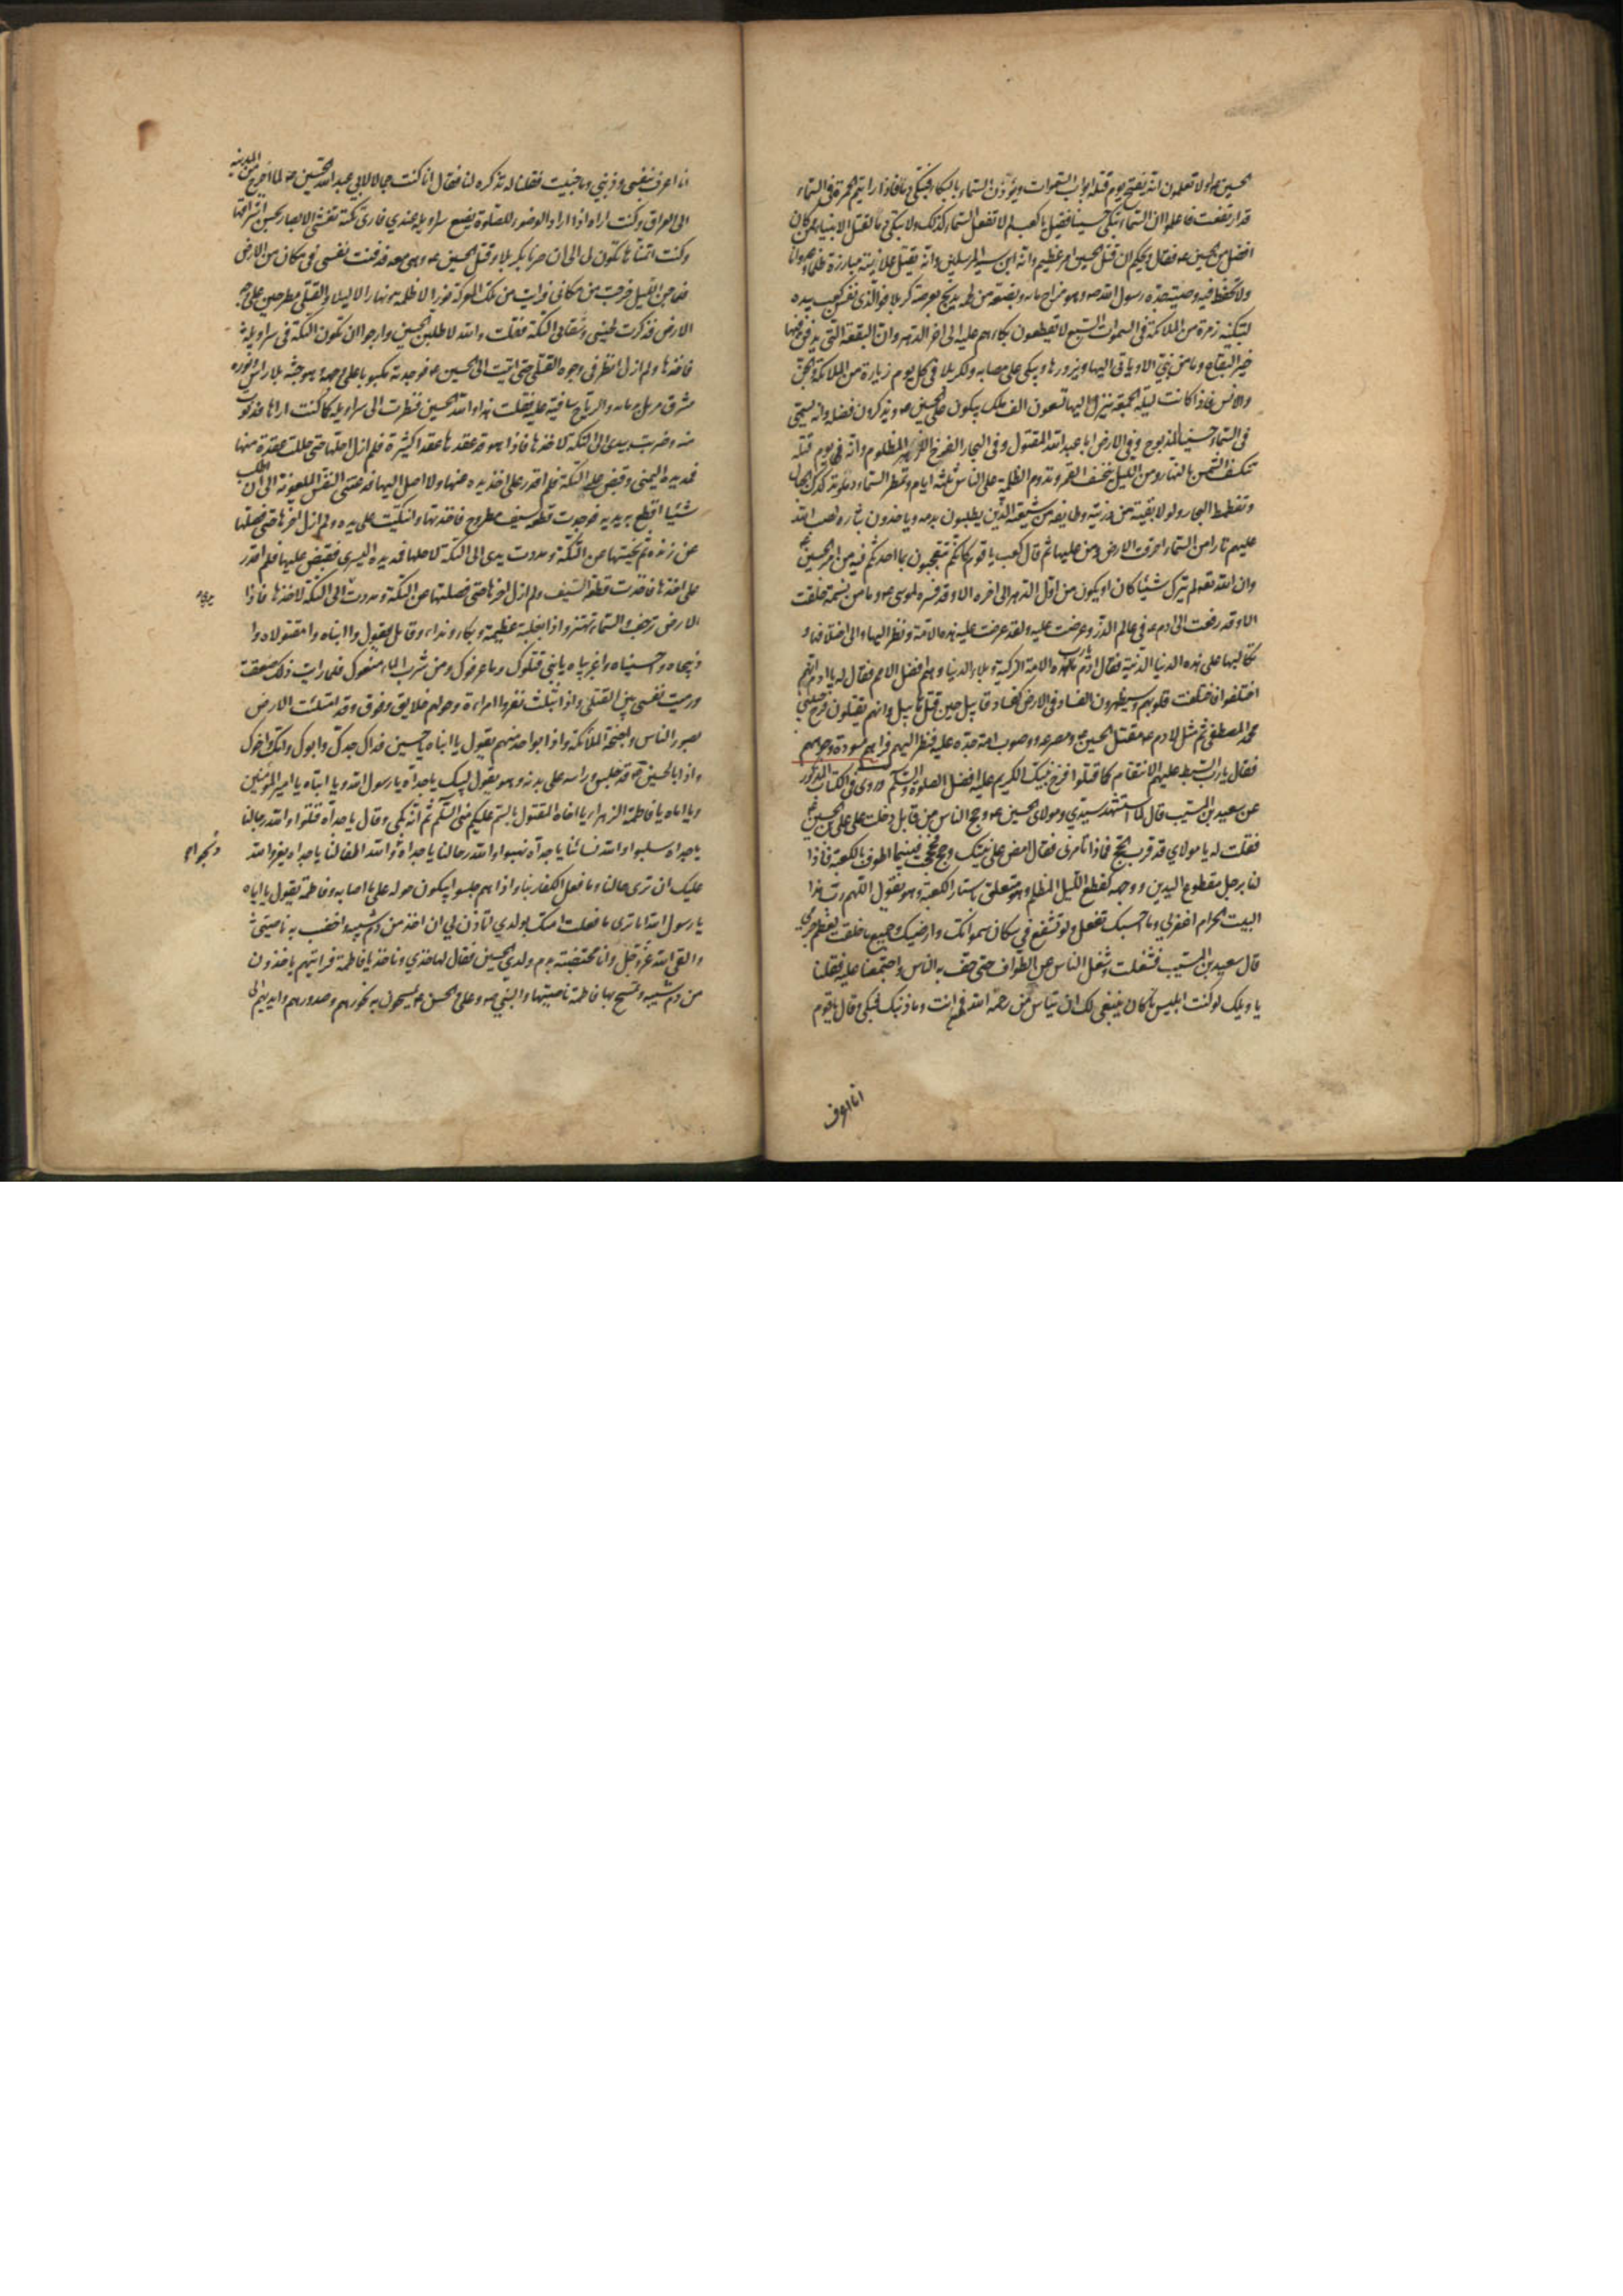 الحسين ع اولا تعلمون انه يفتح يوم قتله ابواب السموات ويؤذن السماء بالبكاء فتبكي دما فاذا رايتم الحمرة في السماء
قد ارتفعت فاعلموا ان السماء تبكي حسينا فقيل يا كعب لم لا تفعل السماء كذلك ولا تبكي دما لقتل الانبياء ممن كان
افضل من الحسين ع فقال ويحكم ان قتل الحسين امر عظيم وانه ابن سيد المرسلين وانه يقتل علانية مبارزة ظلما وعدوانا
ولا تحفظ فيه وصية جده رسول الله ص وهو مزاج مائه وبضعة من لحمه يذبح بعرصة كربلا فوالذي نفس كعب بيده
لتبكينه زمرة من الملائكة في السموات السبع لا يقطعون بكاءهم عليه الى اخر الدهر وان البقعة التي يدفن فيها
خير البقاع وما من نبي الا وياتي اليها ويزورها ويبكي على مصابه ولكربلا في كل يوم زيارة من الملائكة والجن
والانس فاذا كانت ليلة الجمعة ينزل اليها تسعون الف ملك يبكون على الحسين ع ويذكرون فضله وانه يسمى
في السماء حسينا المذبوح وفي الارض ابا عبد الله المقتول وفي البحار الفرخ الازهر المظلوم وانه في يوم قتله
تنكسف الشمس بالنهار ومن الليل ينخسف القمر وتدوم الظلمة على الناس ثلثة ايام وتمطر السماء دما وتدكدك الجبال
وتغطمط البحار ولولا بقية من ذريته وطايفة من شيعته الذين يطلبون بدمه وياخذون بثاره لصب الله
عليهم نارا من السماء احرقت الارض ومن عليها ثم قال كعب يا قوم كانكم تتعجبون بما احدثكم فيه من امر الحسين ع
وان الله تعالى لم يترك شيئا كان او يكون من اول الدهر الى اخره الا وقد فسره لموسى ع وما من نسمة خلقت
الا وقد رفعت الى ادم ع في عالم الذر وعرضت عليه ولقد عرضت عليه هذه الامة ونظر اليها والى اختلافها و
تكالبها على هذه الدنيا الدنية فقال ادم يا رب ما لهذه الامة الزكية وبلاء الدنيا وهم افضل الامم فقال له يا ادم انهم
اختلفوا فاختلفت قلوبهم وسيظهرون الفساد في الارض كفساد قابيل حين قتل هابيل وانهم يقتلون فرخ حبيبي
محمد المصطفى ثم مثل لادم ع مقتل الحسين ع ومصرعه ووثوب امة جده عليه فنظر اليهم فراهم مسودة وجوههم
فقال يا رب ابسط عليهم الانتقام كما قتلوا فرخ نبيك الكريم عليه افضل الصلوة والسلم وروى في الكتاب المذكور
عن سعيد بن المسيب قال لما استشهد سيدي ومولاي الحسين ع وحج الناس من قابل دخلت على علي بن الحسين ع
فقلت له يا مولاي قد قرب الحج فماذا تامرني فقال امض على نيتك وحج فحججت فبينما اطوف بالكعبة فاذا
انا برجل مقطوع اليدين ووجهه كقطع الليل المظلم وهو متعلق باستار الكعبة وهو يقول اللهم رب هذا
البيت الحرام اغفر لي وما احسبك تفعل ولو تشفع في سكان سمواتك وارضيك وجميع ما خلقت لعظم جرمي
قال سعيد بن المسيب فشغلت وشغل الناس عن الطواف حتى حف به الناس واجتمعنا عليه فقلنا
يا ويلك لو كنت ابليس ما كان ينبغي لك ان تياس من رحمة الله فمن انت وما ذنبك فبكى وقال يا قوم
انا اعرف
انا اعرف بنفسي وذنبي وما جنيت فقلنا له تذكره لنا فقال انا كنت جمالا لابي عبد الله الحسين ع لما خرج من المدينة
الى العراق وكنت اراه اذا اراد الوضوء للصلوة يضع سراويله عندي فارى تكة تغشي الابصار بحسن اشراقها
وكنت اتمناها تكون لي الى ان صرنا بكربلا وقتل الحسين ع وهي معه فدفنت نفسي في مكان من الارض
فلما جن الليل خرجت من مكاني فرايت من تلك المعركة نورا لا ظلمة ونهارا لا ليلا والقتلى مطرحين على وجه
الارض فذكرت لخبثي وشقائي التكة فقلت والله لاطلبن الحسين وارجو ان تكون التكة في سراويله
فاخذها ولم ازل انظر في وجوه القتلى حتى اتيت الى الحسين ع فوجدته مكبوبا على وجهه وهو جثة بلا راس ونوره
مشرق مرمل بدمائه والرياح سافية عليه فقلت هذا والله الحسين فنظرت الى سراويله كما كنت اراها فدنوت
منه وضربت بيدي الى التكة لاخذها فاذا هو قد عقدها عقدا كثيرة فلم ازل احلها حتى حللت عقدة منها
فمد يده اليمنى وقبض على التكة فلم اقدر على اخذ يده عنها ولا اصل اليها فدعتني النفس الملعونة الى ان اطلب
شيئا اقطع به يديه فوجدت قطعة سيف مطروح فاخذتها واتكيت على يده ولم ازل احزها حتى فصلتها
عن زنده ثم نحيتها عن التكة ومددت يدي الى التكة لاحلها فمد يده اليسرى فقبض عليها فلم اقدر
على اخذها فاخذت قطعة السيف ولم ازل احزها حتى فصلتها عن التكة ومددت يدي الى التكة لاخذها فاذا
الارض ترجف والسماء تهتز واذا بغلبة عظيمة وبكاء ونداء وقائل يقول وا ابناه وا مقتولاه وا
ذبيحاه وا حسيناه وا غريباه يا بني قتلوك وما عرفوك ومن شرب الماء منعوك فلما رايت ذلك صعقت
ورميت نفسي بين القتلى واذا بثلث نفر وامراة وحولهم خلايق وقوف وقد امتلئت الارض
بصور الناس واجنحة الملائكة واذا بواحد منهم يقول يا ابناه يا حسين فداك جدك وابوك وامك واخوك
واذا بالحسين ع قد جلس وراسه على بدنه وهو يقول لبيك يا جداه ويا رسول الله ويا ابتاه يا امير المؤمنين
ويا اماه يا فاطمة الزهراء ويا اخاه المقتول بالسم عليكم مني السلم ثم انه بكى وقال يا جداه قتلوا والله رجالنا
يا جداه سلبوا والله نسائنا يا جداه نهبوا والله رحالنا يا جداه ذبحوا والله اطفالنا يا جداه يعز والله
عليك ان ترى حالنا وما فعل الكفار بنا واذا هم جلسوا يبكون حوله على ما اصابه وفاطمة تقول يا اباه
يا رسول الله اما ترى ما فعلت امتك بولدي اتاذن لي ان اخذ من دم شيبه واخضب به ناصيتي
والقى الله عز وجل وانا مختضبة بدم ولدي الحسين فقال لها خذي وناخذ يا فاطمة فرايتهم ياخذون
من دم شيبه وتمسح بها فاطمة ناصيتها والنبي ص وعلي والحسن ع يمسحون به نحورهم وصدورهم وايديهم الى